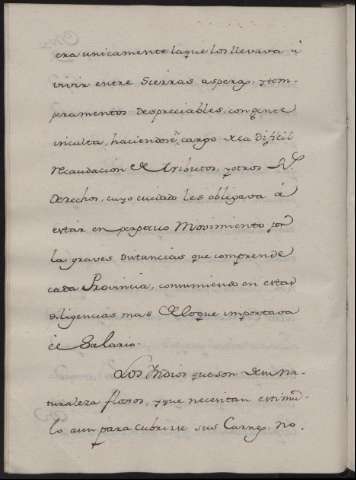 era unicamente la que los llevava á
vivir entre Sierras asperas, y tem-
peramentos despreciables, con gente
inculta, haciendose cargo de la dificil
recaudacion de tributos, y otros Rs.
derechos, cuyo cuidado les obligava á
estar en perpetuo movimiento por
las graves distancias que comprende
cada Provincia, consumiendo en estas
diligencias mas de lo que importava
el Salario.
Los Indios que son de su na-
turaleza flojos, y que necesitan estimu-
lo aun para cubrirse sus Carnes, no